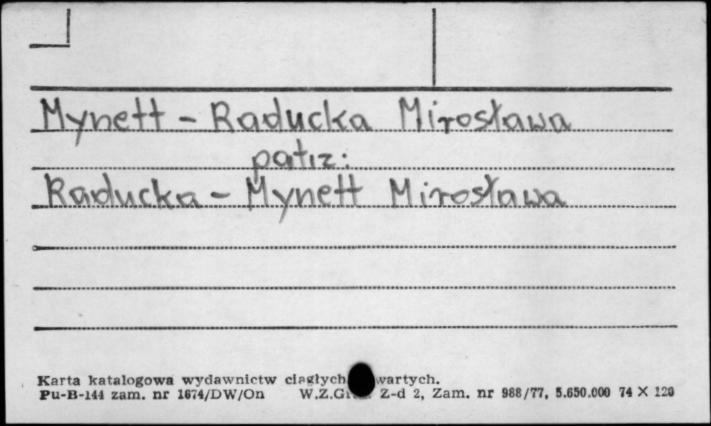 Mynett - Raducka Mirosława
patrz:
Raducka - Mynett Mirosława
Karta katalogowa wydawnictw ciągłych wartych.
Pu-B-144 zam. nr 1674/DW/On W.Z.G Z-d 2, Zam. nr 988/77, 5.650.000 74 X 120